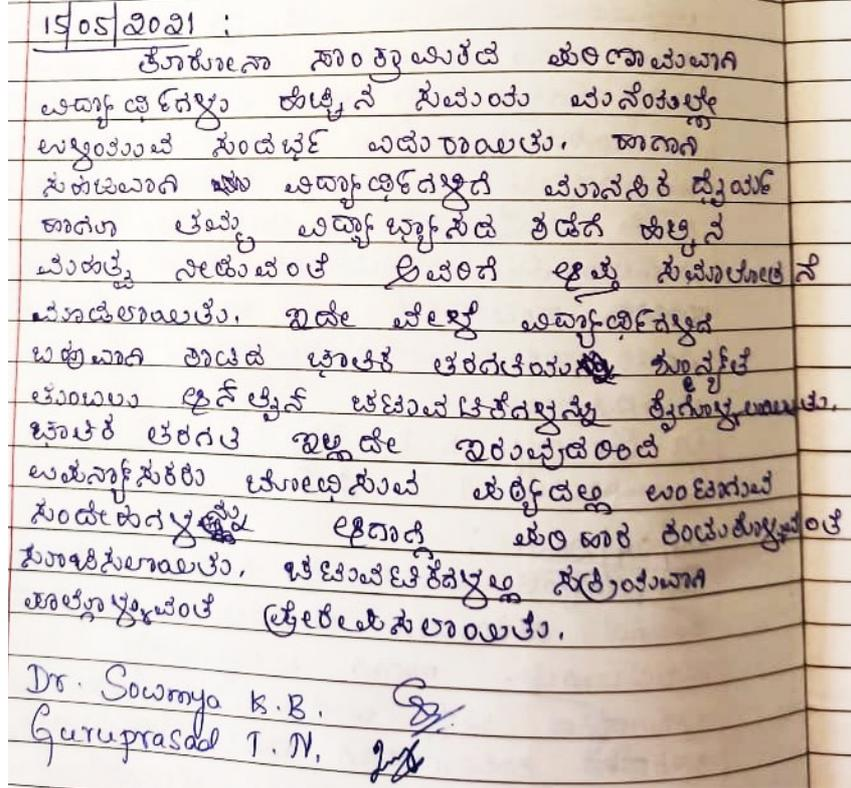 15/05/2021 :
ಕೊರೋನಾ ಸಾಂಕ್ರಾಮಿಕದ ಪರಿಣಾಮವಾಗಿ
ವಿದ್ಯಾರ್ಥಿಗಳು ಹೆಚ್ಚಿನ ಸಮಯ ಮನೆಯಲ್ಲೇ
ಉಳಿಯುವ ಸಂದರ್ಭ ಎದುರಾಯಿತು. ಹಾಗಾಗಿ
ಸಹಜವಾಗಿ ವಿದ್ಯಾರ್ಥಿಗಳಿಗೆ ಮಾನಸಿಕ ಧೈರ್ಯ
ಹಾಗೂ ತಮ್ಮ ವಿದ್ಯಾಭ್ಯಾಸದ ಕಡೆಗೆ ಹೆಚ್ಚಿನ
ಮಹತ್ವ ನೀಡುವಂತೆ ಅವರಿಗೆ ಆಪ್ತ ಸಮಾಲೋಚನೆ
ಮಾಡಲಾಯಿತು. ಇದೇ ವೇಳೆ ವಿದ್ಯಾರ್ಥಿಗಳಿಗೆ
ಬಹುವಾಗಿ ಕಾಡಿದ ಭೌತಿಕ ತರಗತಿಯ ಶೂನ್ಯತೆ
ತುಂಬಲು ಆನ್‌ಲೈನ್ ಚಟುವಟಿಕೆಗಳನ್ನು ಕೈಗೊಳ್ಳಲಾಯಿತು.
ಭೌತಿಕ ತರಗತಿ ಇಲ್ಲದೇ ಇರುವುದರಿಂದ
ಉಪನ್ಯಾಸಕರು ಬೋಧಿಸುವ ಪಠ್ಯದಲ್ಲಿ ಉಂಟಾಗುವ
ಸಂದೇಹಗಳನ್ನು ಆದಾಗ್ಗೆ ಪರಿಹಾರ ಕಂಡುಕೊಳ್ಳುವಂತೆ
ಸೂಚಿಸಲಾಯಿತು. ಚಟುವಟಿಕೆಗಳಲ್ಲಿ ಸಕ್ರಿಯವಾಗಿ
ಪಾಲ್ಗೊಳ್ಳುವಂತೆ ಪ್ರೇರೇಪಿಸಲಾಯಿತು.
Dr. Sowmya K.B.
Guruprasad T.N.